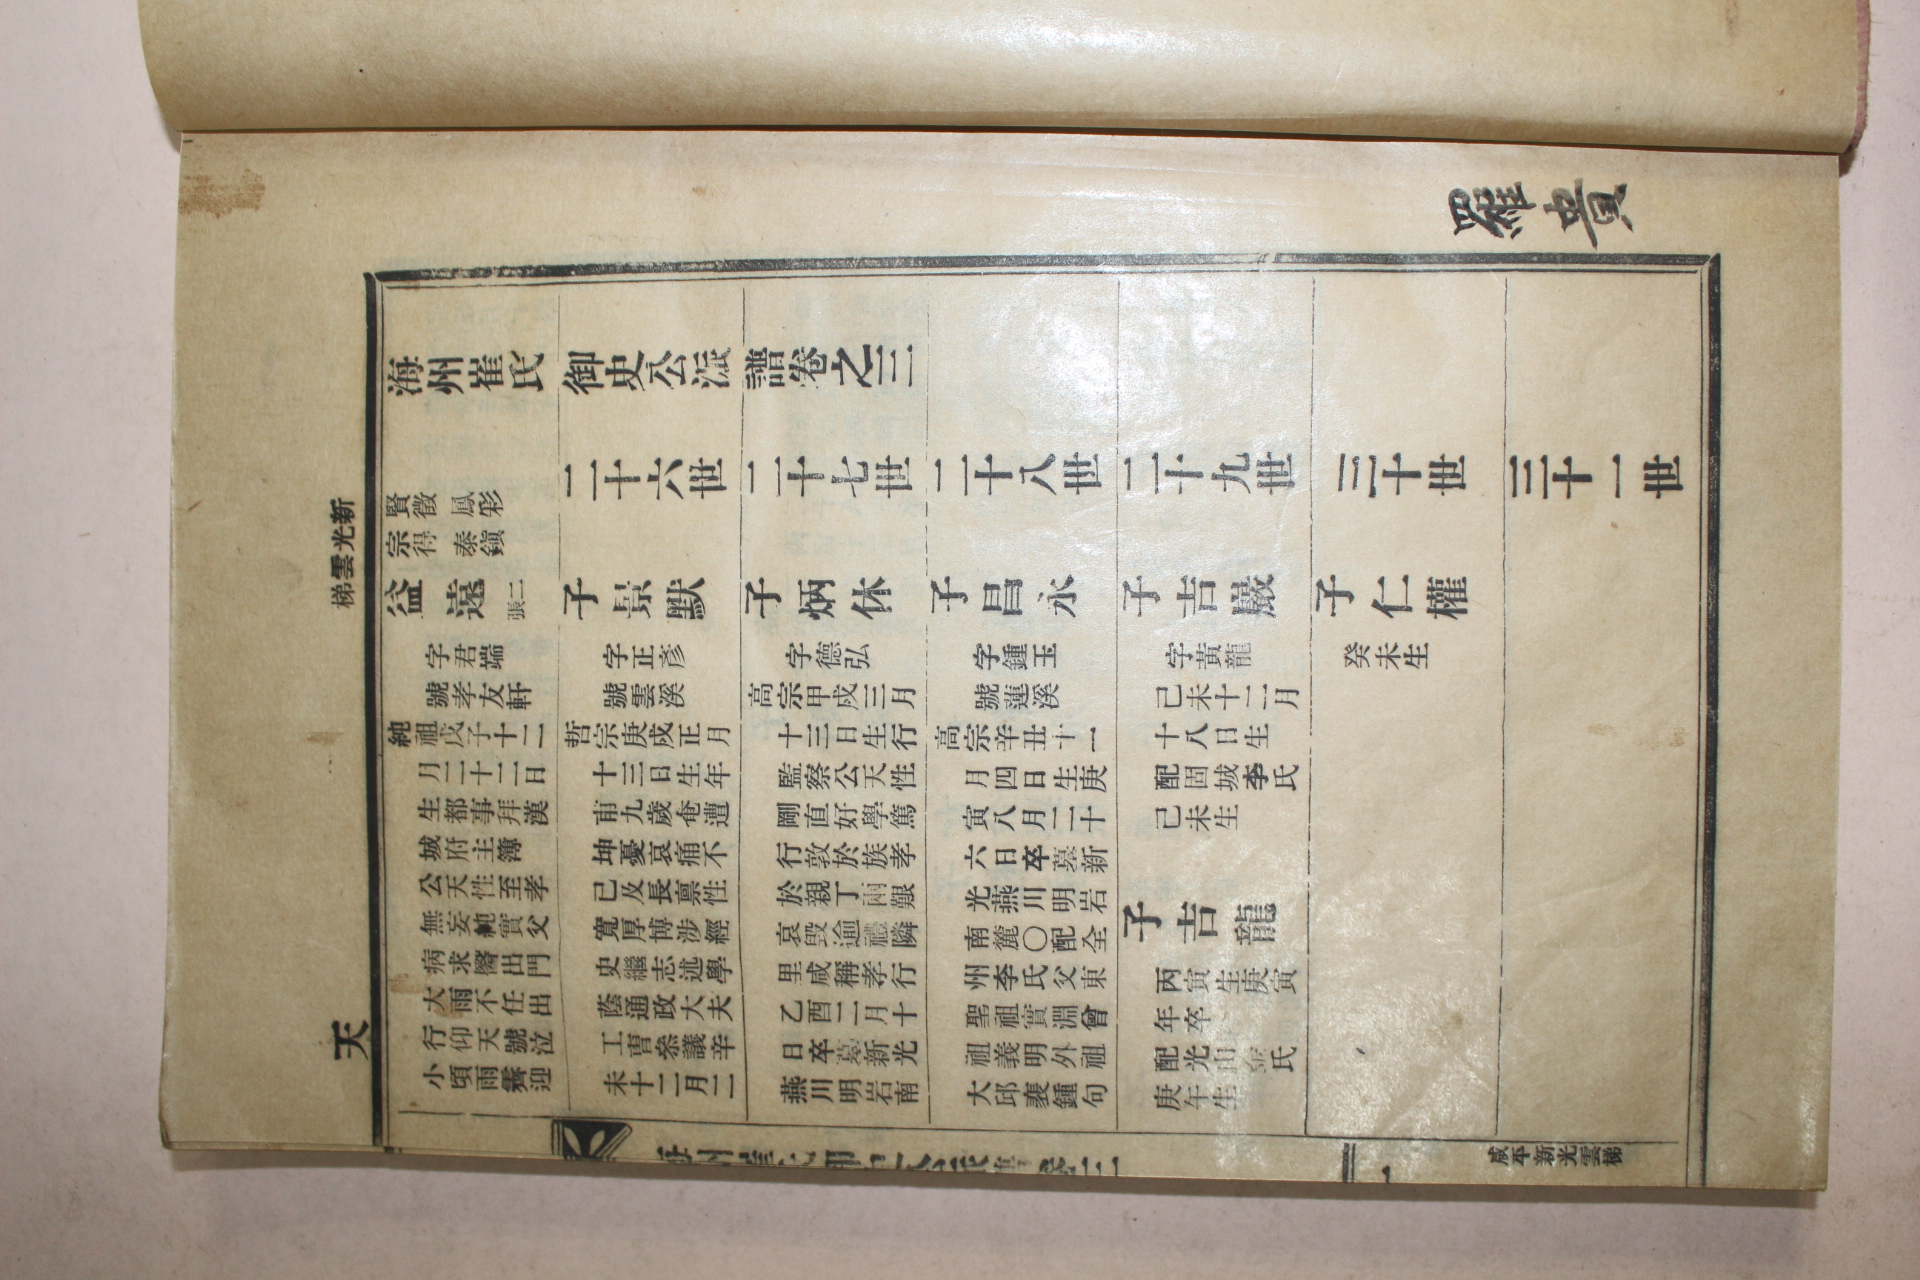 羅貴
海州崔氏御史公派譜卷之三
二十六世
二十七世
二十八世
二十九世
三十世
三十一世
新光
雲梯
天
賢徵 鳳彩
宗得 泰鎭
益遠 張二
字君端
號孝友軒
純祖戊子十二
月二十二日
生都事拜漢
城府主簿
公天性至孝
無妄純實父
病求醫出門
大雨不任出
行仰天號泣
小頃雨霽迎
子景默
字正彥
號雲溪
哲宗庚戌正月
十三日生年
甫九歲奄遭
坤憂哀痛不
已及長禀性
寬厚博涉經
史繼志述學
蔭通政大夫
工曹叅議辛
未十二月二
子炳休
字德弘
高宗甲戌三月
十三日生行
監察公天性
剛直好學篤
行敦於族孝
於親丁兩艱
哀毀逾禮隣
里咸稱孝行
乙酉二月十
日卒墓新光
燕川明岩南
子昌永
字鍾玉
號蓮溪
高宗辛丑十一
月四日生庚
寅八月二十
六日卒墓新
光燕川明岩
南麓〇配全
州李氏父東
聖祖實淵曾
祖義明外祖
大邱裵鍾句
子吉巖
字黃龍
己未十二月
十八日生
配固城李氏
己未生
子吉龍
丙寅生庚寅
年卒
配光山金氏
庚午生
子仁權
癸未生
咸平新光雲梯